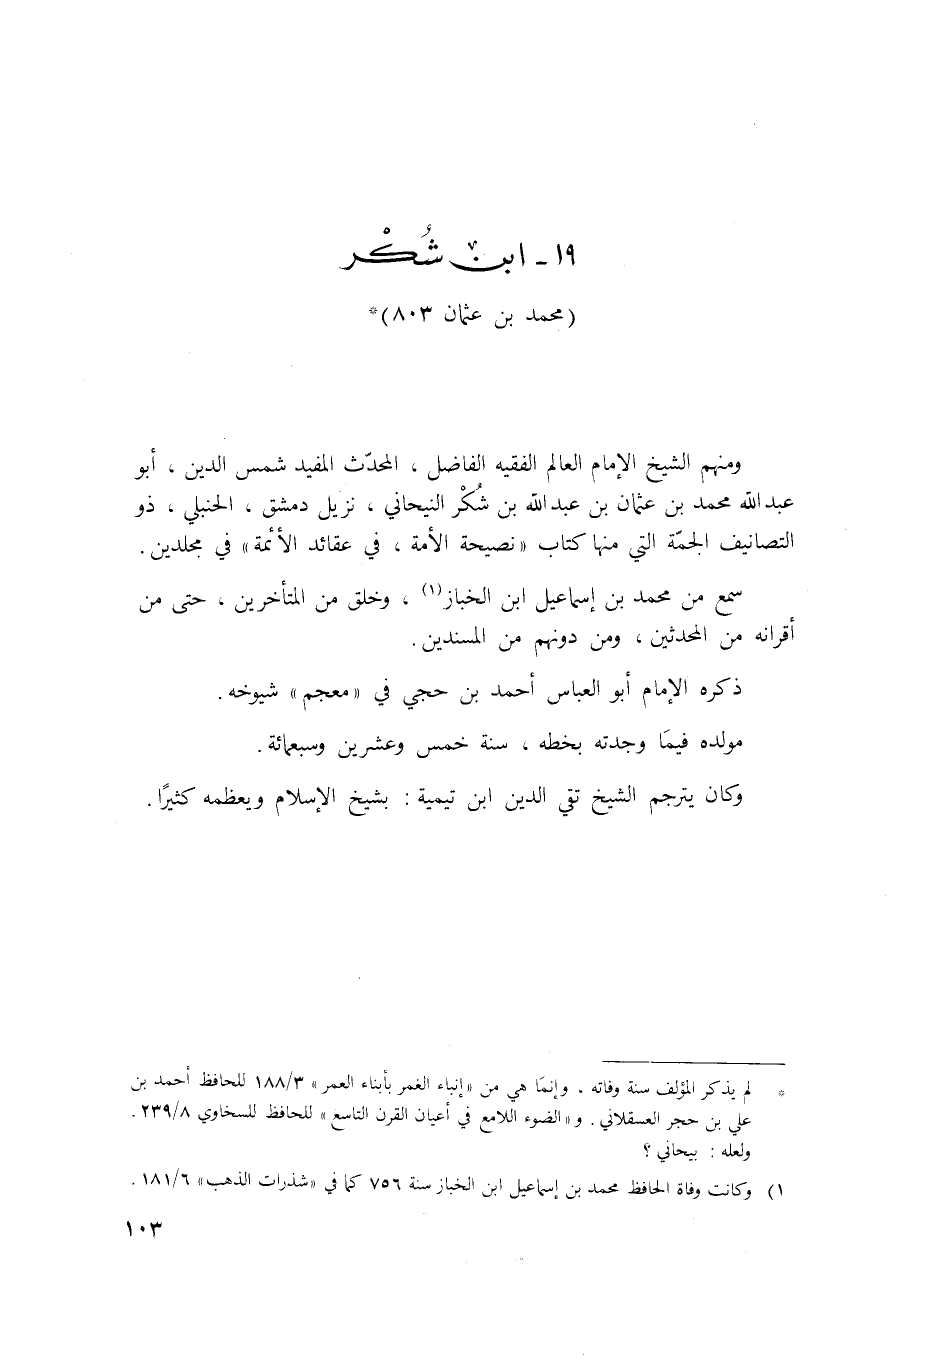 ١٩ - ابن شُكْر
(محمد بن عثمان ٨٠٣)*
ومنهم الشيخ الإمام العالم الفقيه الفاضل ، المحدّث المفيد شمس الدين ، أبو
عبدالله محمد بن عثمان بن عبدالله بن شُكْر النيحاني ، نزيل دمشق ، الحنبلي ، ذو
التصانيف الجمّة التي منها كتاب «نصيحة الأمة ، في عقائد الأئمة» في مجلدين .
سمع من محمد بن إسماعيل ابن الخباز(١) ، وخلق من المتأخرين ، حتى من
أقرانه من المحدثين ، ومن دونهم من المسندين .
ذكره الإمام أبو العباس أحمد بن حجي في «معجم» شيوخه .
مولده فيمَا وجدته بخطه ، سنة خمس وعشرين وسبعمائة .
وكان يترجم الشيخ تقي الدين ابن تيمية : بشيخ الإسلام ويعظمه كثيرًا .
* لم يذكر المؤلف سنة وفاته . وإنمَا هي من «إنباء الغمر بأبناء العمر» ١٨٨/٣ للحافظ أحمد بن
علي بن حجر العسقلاني . و«الضوء اللامع في أعيان القرن التاسع» للحافظ للسخاوي ٢٣٩/٨ .
ولعله : بيحاني ؟
١) وكانت وفاة الحافظ محمد بن إسماعيل ابن الخباز سنة ٧٥٦ كما في «شذرات الذهب» ١٨١/٦ .
١٠٣